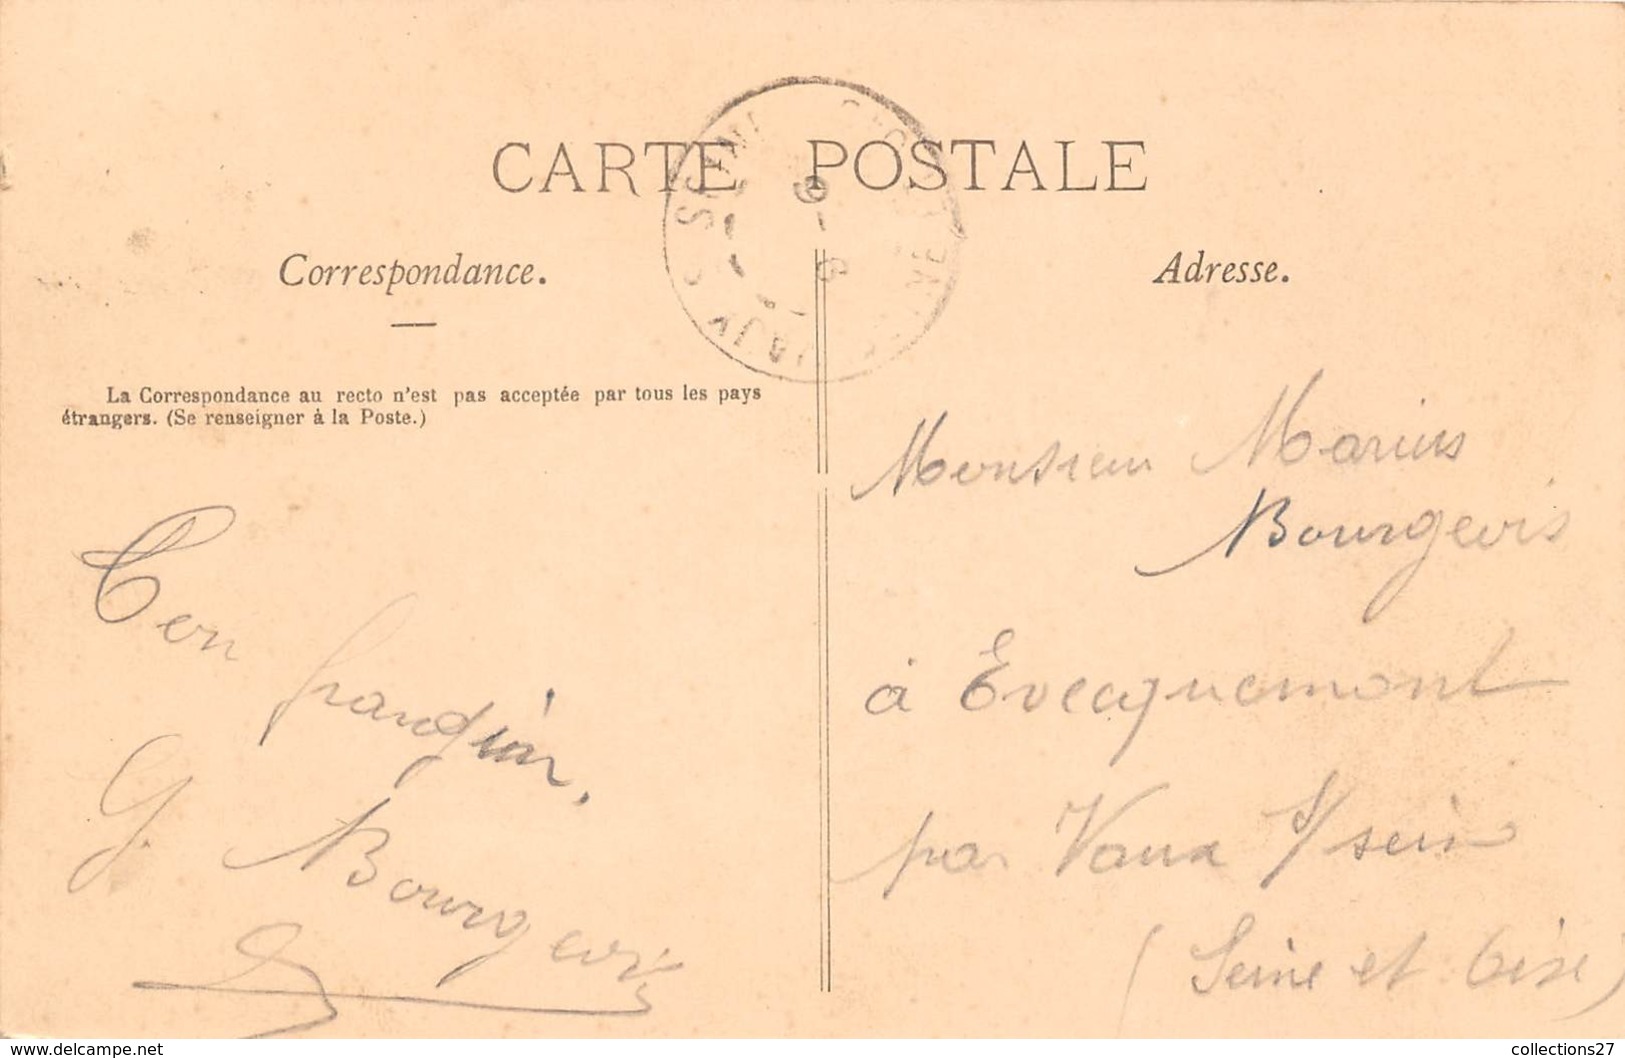 CARTE POSTALE
Correspondance.
La Correspondance au recto n'est pas acceptée par tous les pays
étrangers. (Se renseigner à la Poste.)
Ton frangin.
G. Bourgeois
Adresse.
Monsieur Marius
Bourgeois
à Evecquemont
par Vaux s/ seine
(Seine et Oise)
www.delcampe.net
collections27